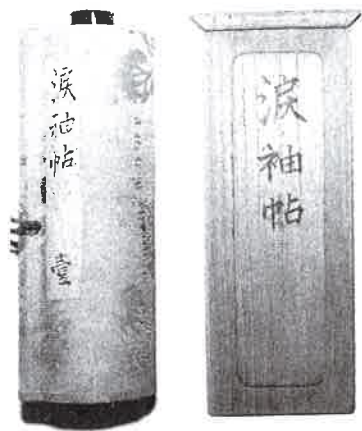 涙袖帖 壹
涙袖帖